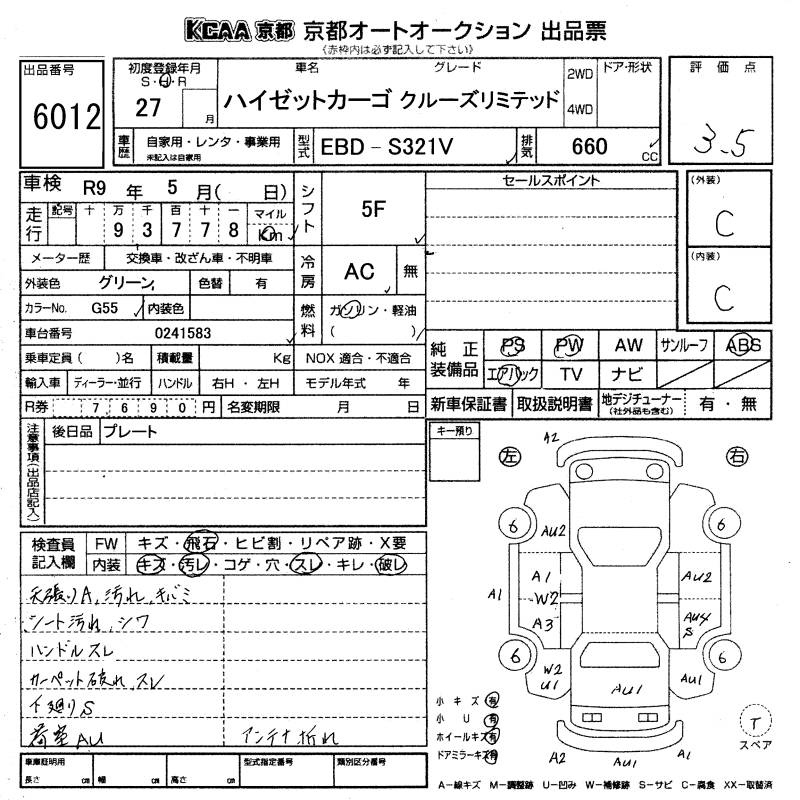 KCAA 京都 京都オートオークション 出品票
《赤枠内は必ず記入して下さい》
出品番号 6012
初度登録年月 S・H・R 27 月
車名 グレード
ハイゼットカーゴ クルーズリミテッド
2WD 4WD
ドア・形状
評価点 3.5
車歴 自家用・レンタ・事業用
未記入は自家用
型式 EBD-S321V
排気 660 CC
車検 R9 年 5 月( 日)
シフト 5F
セールスポイント
(外装) C
(内装) C
走行 記号 十 万 千 百 十 一 マイル
9 3 7 7 8 Km
メーター歴 交換車・改ざん車・不明車
冷房 AC 無
外装色 グリーン 色替 有
カラーNo. G55 内装色
燃料 ガソリン・軽油
( )
車台番号 0241583
乗車定員( )名 積載量 Kg NOX 適合・不適合
輸入車 ディーラー・並行 ハンドル 右H・左H モデル年式 年
R券 7,690円 名変期限 月 日
純正装備品 PS PW AW サンルーフ ABS
エアバック TV ナビ
新車保証書 取扱説明書 地デジチューナー(社外品も含む) 有・無
注意事項(出品店記入) 後日品 プレート
キー預り
左 右
A2
6 6
AU2
A1 A1 W2 A3
AU2 AU4 S
6 6
W2 U1
AU1
AU1
A2 AU1 A1
T
スペア
検査員記入欄 FW キズ・飛石・ヒビ割・リペア跡・X要
内装 キズ・汚レ・コゲ・穴・スレ・キレ・破レ
天張りA,汚れ,キバミ
シート汚れ,シワ
ハンドルスレ
カーペット破れ,スレ
下廻りS
荷室AU アンテナ折れ
小キズ 有
小U 有
ホイールキズ 有
ドアミラーキズ 有
車庫証明用 長さ cm 幅 cm 高さ cm
型式指定番号 類別区分番号
A-線キズ M-調整跡 U-凹み W-補修跡 S-サビ C-腐食 XX-取替済